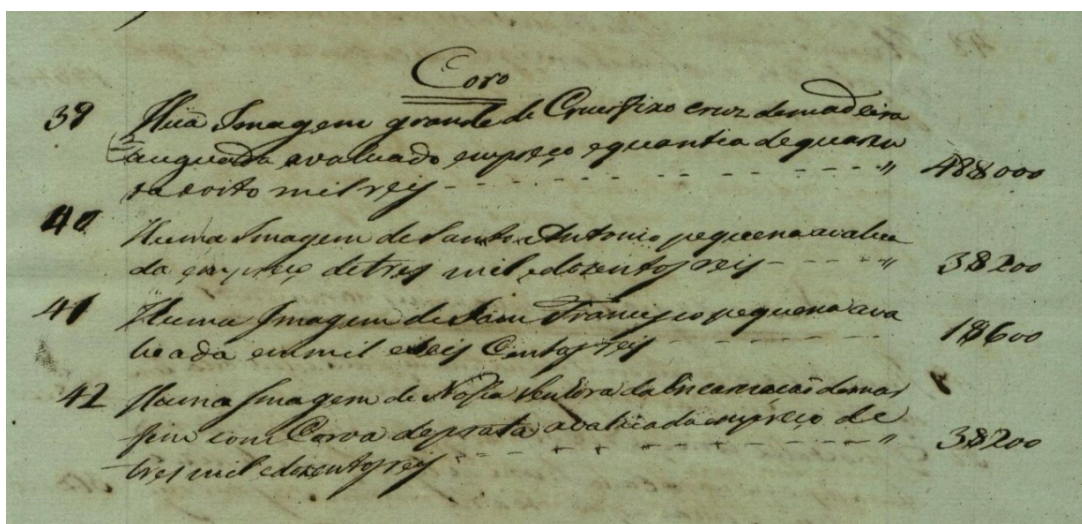 Coro
39 Huã Imagem grande de Crucifixo cruz de madeira
avaluado em preço e quantia de quaren
ta e oito mil reis - - - - - - - - " 48$000
40 Huma Imagem de Santo Antonio pequena avalia
da em preço de tres mil e dozentos reis - - - - " 3$200
41 Huma Imagem de Sam Francisco pequena ava
liada em mil e seis Centos reis - - - - - 1$600
42 Huma Imagem de Nossa Senhora da Encarnação de mar
fim com Coroa de prata avaliada em preço de
tres mil e dozentos reis - - - - - - - " 3$200